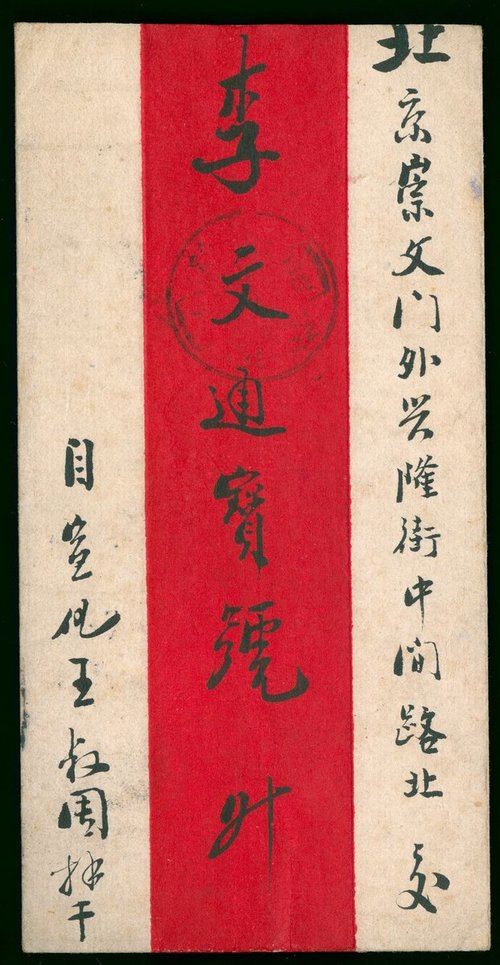 北京崇文门外兴隆街中间路北 交
李文通寶號 升
自宣化王叔周